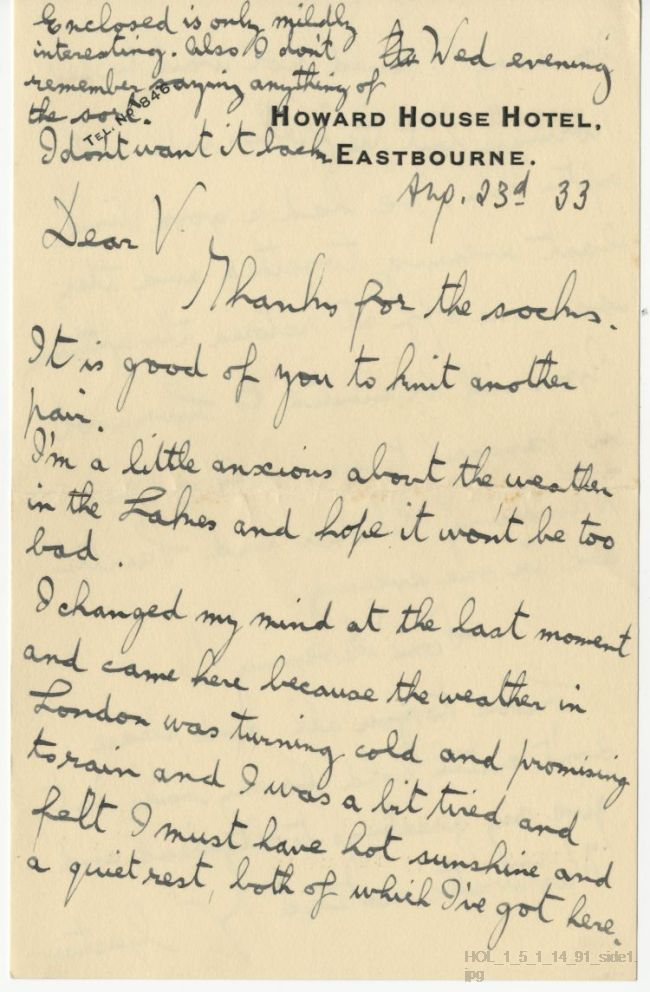 Enclosed is only mildly
interesting. Also I don't
remember saying anything of
the sort.
I don't want it back
Wed evening
TEL. No 846
HOWARD HOUSE HOTEL,
EASTBOURNE.
Aug. 23rd 33
Dear V.
Thanks for the socks.
It is good of you to knit another
pair.
I'm a little anxious about the weather
in the Lakes and hope it won't be too
bad.
I changed my mind at the last moment
and came here because the weather in
London was turning cold and promising
to rain and I was a bit tired and
felt I must have hot sunshine and
a quiet rest, both of which I've got here.
HOL_1_5_1_14_91_side1.
jpg